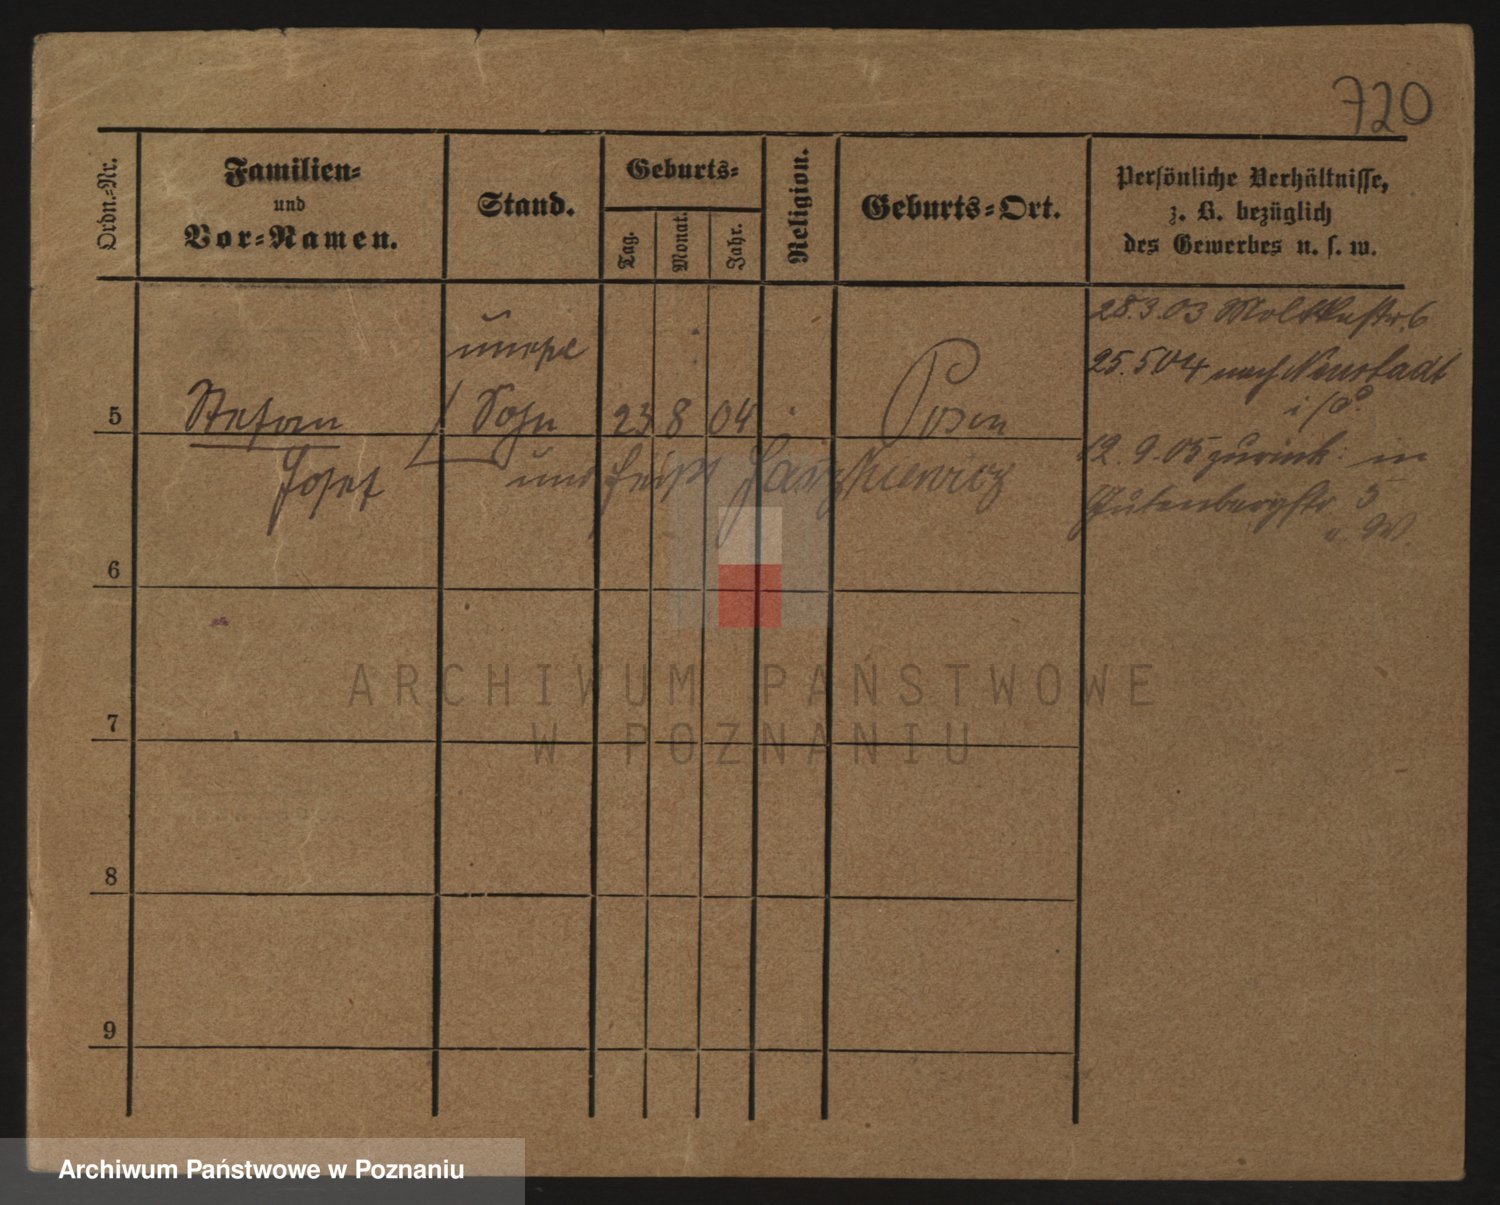 720
Ordn.-Nr.
Familien-
und
Vor-Namen.
Stand.
Geburts-
Tag.
Monat.
Jahr.
Religion.
Geburts-Ort.
Persönliche Verhältnisse,
z. B. bezüglich
des Gewerbes u. s. w.
28.3.03 Moltkestr. 6
unehe
25.5 04 nach Neustadt
5 Stefan / Sohn 23 8 04 Posen
12.9.05 zurück in
Josef und heißt
Gutenbergstr 5
6
7
8
9
ARCHIWUM PAŃSTWOWE
W POZNANIU
Archiwum Państwowe w Poznaniu